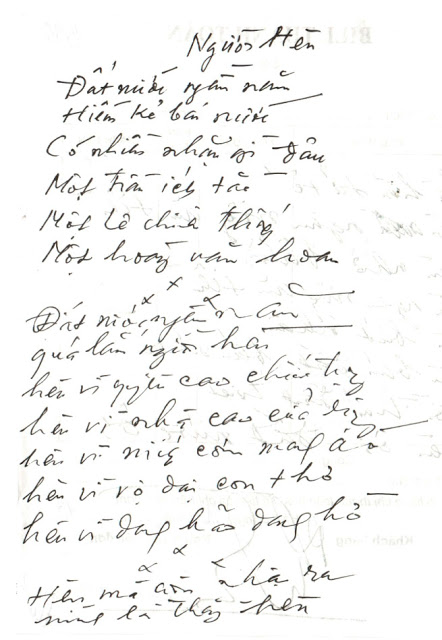 Người Hèn
Đất nước ngàn năm
Hiếm kẻ bán nước
Có nhiều nhặn gì đâu
Một Trần ích tắc
Một Lê chiêu thống
Một hoàng văn hoan
x x x
Đất nước ngàn năm
quá lắm người hèn
hèn vì quyền cao chức trọng
hèn vì nhà cao cửa rộng
hèn vì miếng cơm manh áo
hèn vì vợ dại con thơ
hèn vì đảng hão đảng hờ
x x x
Hèn mà còn nhận ra
mình là thằng hèn